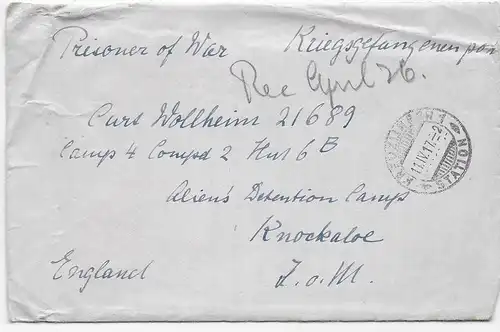 Prisoner of War Kriegsgefangenenpost
Rec April 26.
Curt Wollheim 21689
Camp 4 Compd 2 Hut 6B
Alien's Detention Camp
Knockaloe
England I.o.M.
11.IV.17.-2
STATION